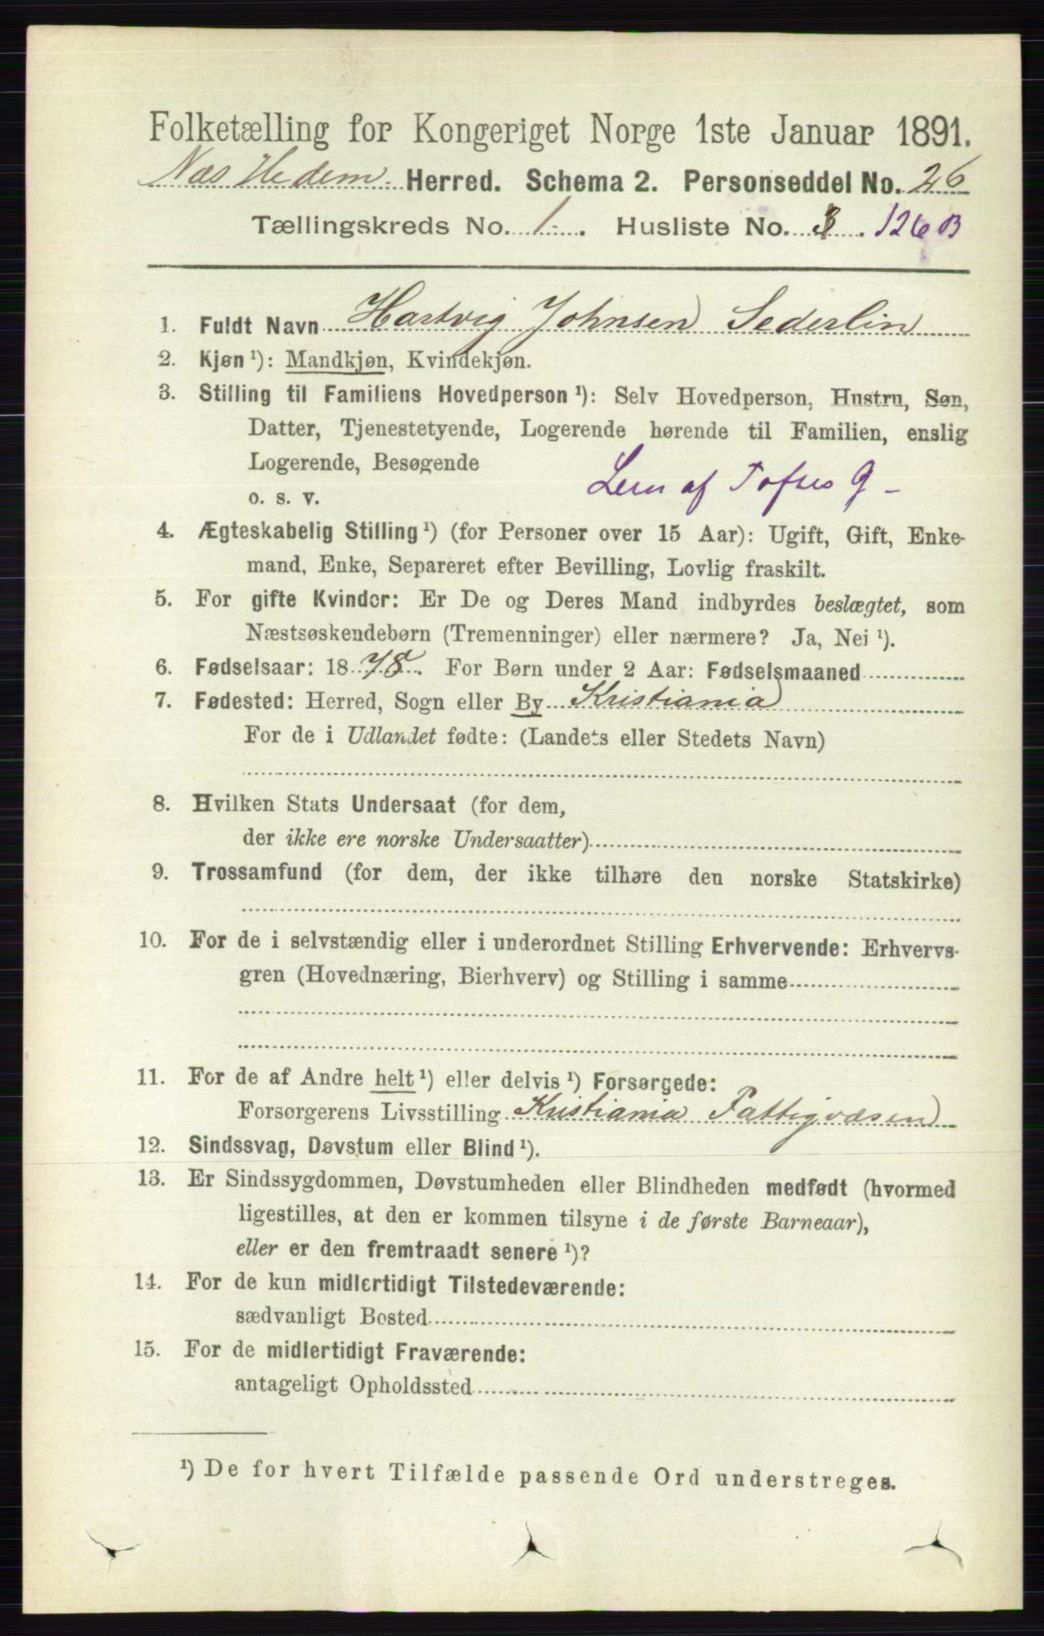 Folketælling for Kongeriget Norge 1ste Januar 1891.
Næs Hedem. Herred. Schema 2. Personseddel No. 26
Tællingskreds No. 1. Husliste No. 3. 126 B
1. Fuldt Navn Hartvig Johnsen Sederlin
2. Kjøn ¹): Mandkjøn, Kvindekjøn.
3. Stilling til Familiens Hovedperson ¹): Selv Hovedperson, Hustru, Søn,
Datter, Tjenestetyende, Logerende hørende til Familien, enslig
Logerende, Besøgende
o. s. v. Lem af Toftes G –
4. Ægteskabelig Stilling ¹) (for Personer over 15 Aar): Ugift, Gift, Enke-
mand, Enke, Separeret efter Bevilling, Lovlig fraskilt.
5. For gifte Kvinder: Er De og Deres Mand indbyrdes beslægtet, som
Næstsøskendebørn (Tremenninger) eller nærmere? Ja, Nei ¹).
6. Fødselsaar: 1878. For Børn under 2 Aar: Fødselsmaaned
7. Fødested: Herred, Sogn eller By Kristiania
For de i Udlandet fødte: (Landets eller Stedets Navn)
8. Hvilken Stats Undersaat (for dem,
der ikke ere norske Undersaatter)
9. Trossamfund (for dem, der ikke tilhøre den norske Statskirke)
10. For de i selvstændig eller i underordnet Stilling Erhvervende: Erhvervs-
gren (Hovednæring, Bierhverv) og Stilling i samme
11. For de af Andre helt ¹) eller delvis ¹) Forsørgede:
Forsørgerens Livsstilling Kristiania Fattigvæsen
12. Sindssvag, Døvstum eller Blind ¹).
13. Er Sindssygdommen, Døvstumheden eller Blindheden medfødt (hvormed
ligestilles, at den er kommen tilsyne i de første Barneaar),
eller er den fremtraadt senere ¹)?
14. For de kun midlertidigt Tilstedeværende:
sædvanligt Bosted
15. For de midlertidigt Fraværende:
antageligt Opholdssted
¹) De for hvert Tilfælde passende Ord understreges.